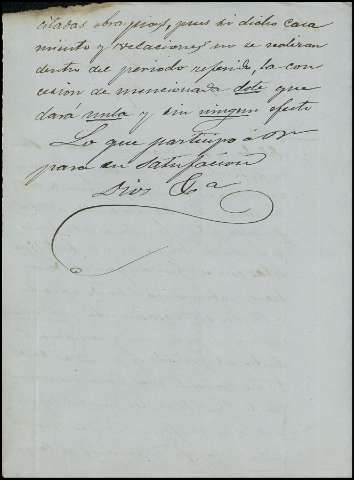 citadas obra pias, pues si dicho casa
miento y velaciones no se realizan
dentro del periodo referido, la con
cesion de mencionada dote que
dará nula y sin ningun efecto
Lo que participo á
para su satisfaccion
Dios Gª